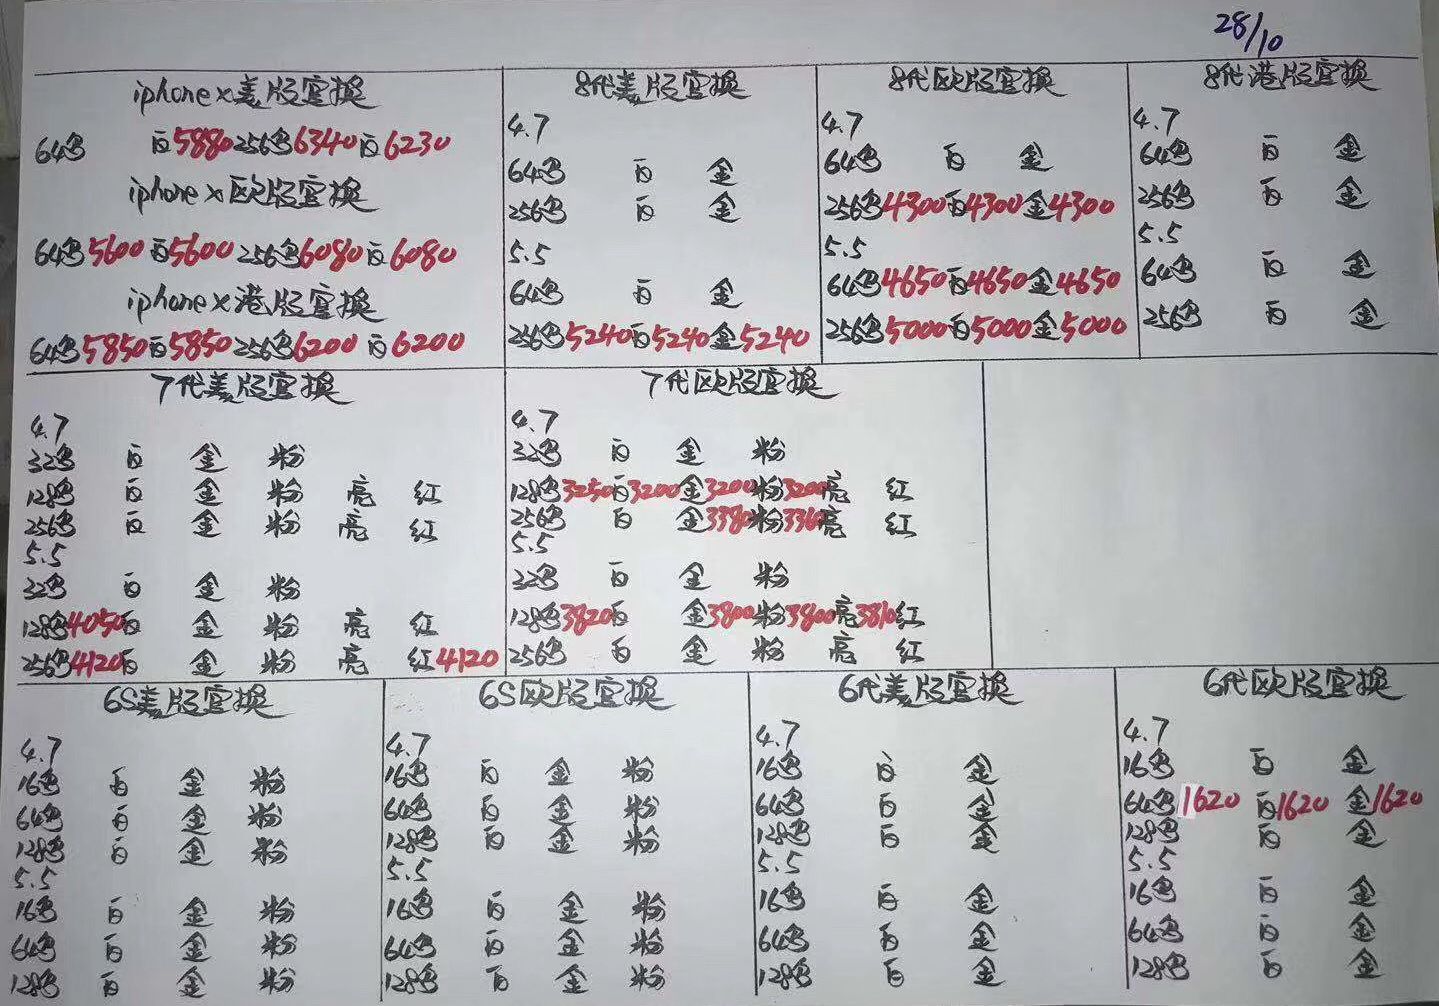 28/10
iphone x美版官换
64黑 白5880 256黑6340白6230
iphone x欧版官换
64黑5600白5600 256黑6080白6080
iphone x港版官换
64黑5850白5850 256黑6200白6200
8代美版官换
4.7
64黑 白 金
256黑 白 金
5.5
64黑 白 金
256黑5240白5240金5240
8代欧版官换
4.7
64黑 白 金
256黑4300白4300金4300
5.5
64黑4650白4650金4650
256黑5000白5000金5000
8代港版官换
4.7
64黑 白 金
256黑 白 金
5.5
64黑 白 金
256黑 白 金
7代美版官换
4.7
32黑 白 金 粉
128黑 白 金 粉 亮 红
256黑 白 金 粉 亮 红
5.5
32黑 白 金 粉
128黑4050白 金 粉 亮 红
256黑4120白 金 粉 亮 红4120
7代欧版官换
4.7
32黑 白 金 粉
128黑3250白3200金3200粉3200亮 红
256黑 白 金3380粉3360亮 红
5.5
32黑 白 金 粉
128黑3820白 金3800粉3800亮3810红
256黑 白 金 粉 亮 红
6S美版官换
4.7
16黑 白 金 粉
64黑 白 金 粉
128黑 白 金 粉
5.5
16黑 白 金 粉
64黑 白 金 粉
128黑 白 金 粉
6S欧版官换
4.7
16黑 白 金 粉
64黑 白 金 粉
128黑 白 金 粉
5.5
16黑 白 金 粉
64黑 白 金 粉
128黑 白 金 粉
6代美版官换
4.7
16黑 白 金
64黑 白 金
128黑 白 金
5.5
16黑 白 金
64黑 白 金
128黑 白 金
6代欧版官换
4.7
16黑 白 金
64黑1620 白1620 金1620
128黑 白 金
5.5
16黑 白 金
64黑 白 金
128黑 白 金